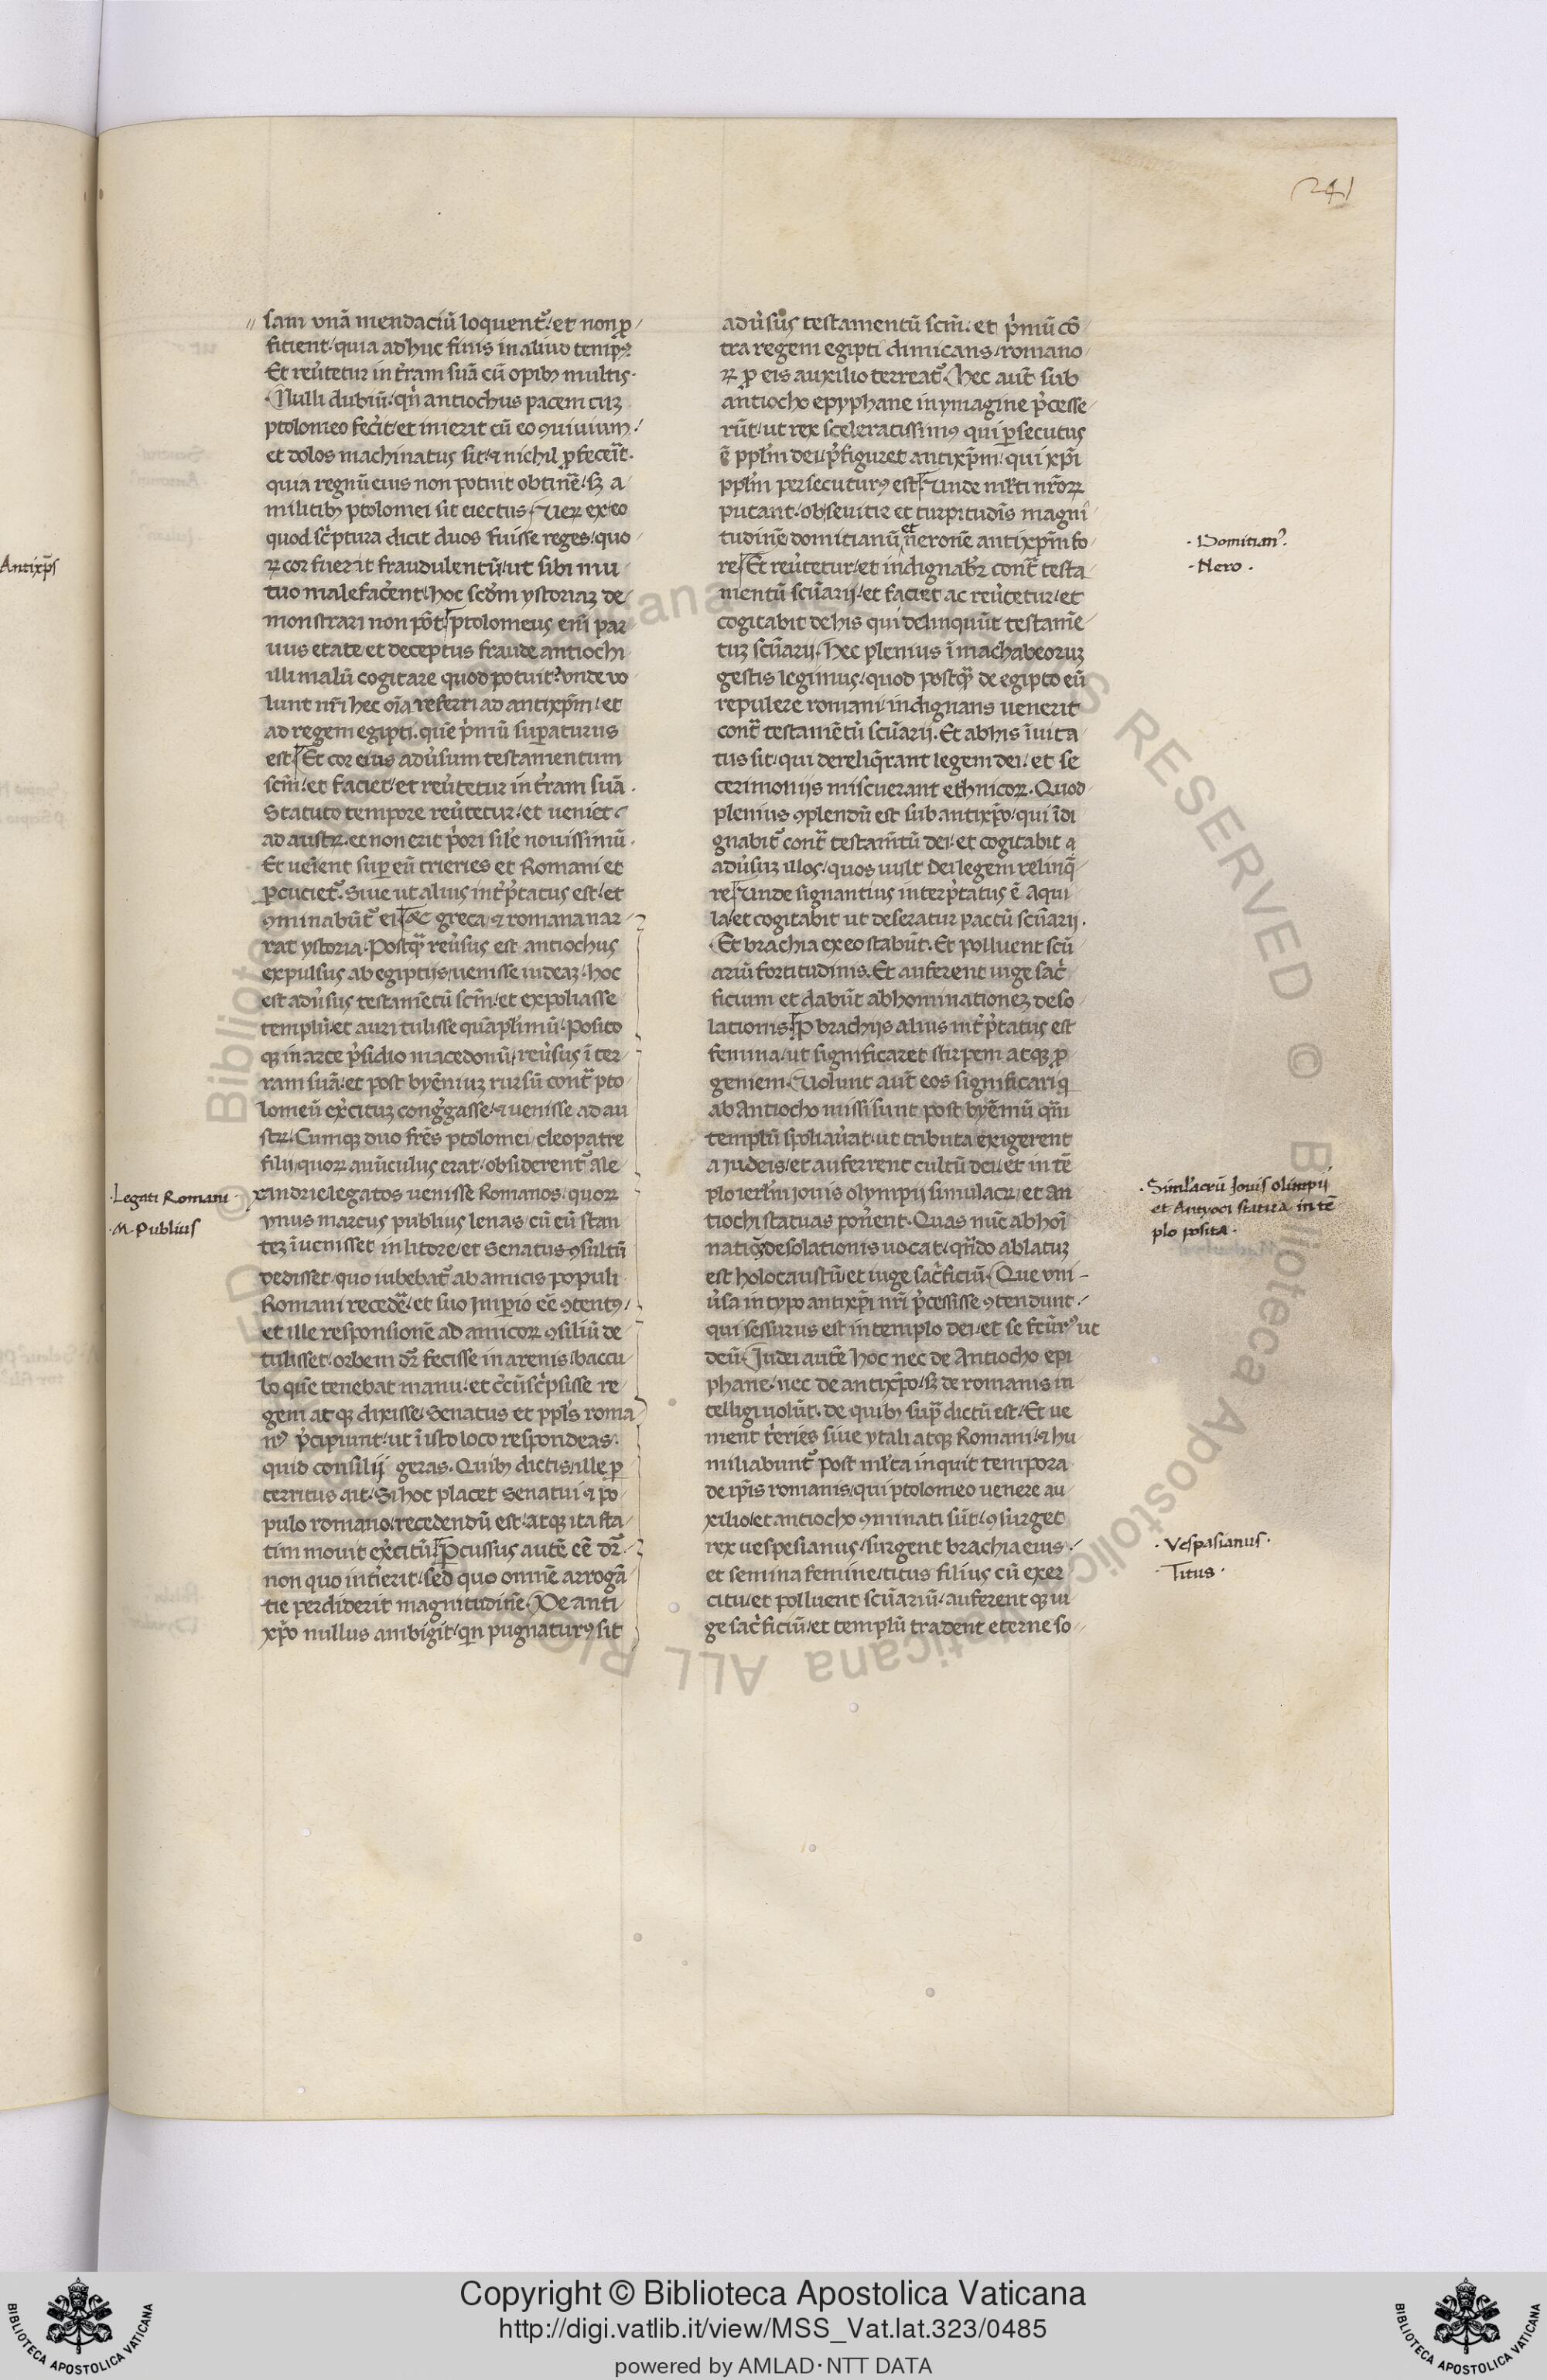 241
Antixp̄s
sam vnā mendaciū loquentᷣ et non ꝓ
ficient quia adhuc finis in aliud tempꝰ
Et reůtetur in t̉ram suā cū opibꝫ multis.
Nulli dubiū qn̄ antiochus pacem cuꝫ
ptolomeo fec̉it et inierit cū eo ꝯuiuium
et dolos machinatus sit ⁊ nichil ꝓfecerit.
quia regnū eius non potuit obtinē sꝫ a
militibꝫ ptolomei sit eiectus Veꝝ ex eo
quod sc̉ptura dicit duos fuisse reges quo
ꝝ cor fuerit fraudulentū ut sibi mu
tuo malefac̉ent hoc scd̄m ystoriaꝫ de
monstrari non pōt ptolomeus eni̅ par
uus etate et deceptus fraude antiochi
illi malū cogitare quod potuit? vnde vo
lunt nr̄i hec oīa referri ad antixp̄m et
ad regem egipti. quē p̉mū suꝑaturus
est Et cor eius adůsum testamentum
scm̄ et faciet et reůtetur in t̉ram suā.
Statuto tempore reůtetur et ueniet
ad austꝝ. et non erit p̉ori sil̄e nouissimū.
Et ueīent suꝑ eū trieries et Romani et
ꝑcucietᷣ. Siue ut alius int̉p̉tatus est et
ꝯminabūtᷣ ei ⁊c greca ⁊ romana nar
rat ystoria. Postꝗ̄ reůsus est antiochus
expulsus ab egiptiis uenisse iudeaꝫ hoc
est adůsus testamētū scm̄ et expoliasse
templū et auri tulisse quāpl̄imū Posito
qꝫ in arce p̉sidio macedonū reůsus ī ter
ram suā et post byēniuꝫ rursū cont̄ pto
lomeū exc̉ituꝫ cong̉gasse ⁊ uenisse ad au
stꝝ. Cumqꝫ duo frēs ptolomei cleopatre
filii quoꝝ auūculus erat obsiderentᷣ ale
xandrie legatos uenisse Romanos. quoꝝ
vnus marcus publius lenas cū eū stan
teꝫ īuenisset in litore et Senatus ꝯsultū
dedisset quo iubebatᷣ ab amicis populi
Romani recedē et suo Imꝑio eē ꝯtentꝰ
et ille responsionē ad amicoꝝ ꝯsiliū de
tulisset orbem dr̄ fecisse in arenis baccu
lo quē tenebat manu et cc̉ūsc̉psisse re
gem atqꝫ dixisse Senatus et ppl̄s roma
nꝰ p̉cipiunt ut ī isto loco respondeas.
quid consilij geras. Quibꝫ dictis ille ꝑ
territus ait Si hoc placet Senatui ⁊ po
pulo romano recedendū est atqꝫ ita sta
tim mouit exc̉itū Ꝑcussus autē eē dr̄
non quo int̉ierit sed quo omnē arrogā
tie perdiderit magnitudinē De anti
xp̄o nullus ambigit qn̄ pugnaturꝰ sit
Legati Romani
M. Publius
adůsus testamentū scm̄. et p̉mū cō
tra regem egipti dimicans romano
ꝝ ꝓ eis auxilio terreatᷣ Hec aut̄ sub
antiocho epyphane in ymagine p̉cesse
rūt ut rex sceleratissimꝰ qui ꝑsecutus
ē ppl̄m dei p̉figuret antixp̄m qui xp̄i
ppl̄m persecuturꝰ est Unde ml̄ti nr̄oꝝ
putant ob seuitiē et turpitudīs magni
tudinē domitianū et neronē antixp̄m fo
re Et reůtetur et indignabr̄ cont̄ testa
mentū scūarij et faciet ac reůtetur et
cogitabit de his qui delinquūt testamē
tuꝫ scūarij Hec plenius ī machabeoruꝫ
gestis legimus quod postꝗ̄ de egipto eū
repulere romani indignans uenerit
cont̄ testamētū scūarij. Et ab his īuita
tus sit qui dereliq̄rant legem dei et se
cerimoniis miscuerant ethnicoꝝ. Quod
plenius ꝯplendū est sub antixp̄o qui īdi
gnabitᷣ cont̄ testam̄tū dei et cogitabit
adůsuꝫ illos quos uult Dei legem relinq̄
re Unde signantius interp̉tatus ē Aqui
la et cogitabit ut deseratur pactū scūarij.
Et brachia ex eo stabūt. Et polluent scū
ariū fortitudinis. Et auferent iuge sac̉
ficium et dabūt abhominationeꝫ deso
lationis P brachijs alius int̉p̉tatus est
semina ut significaret stirpem atqꝫ ꝓ
geniem Volunt aut̄ eos significari q
ab Antiocho missi sunt post byēniū qm̄
templū spoliaůat ut tributa exigerent
a Judeis et auferrent cultū dei et in tē
plo ierl̄m jouis olympij simulacꝝ et an
tiochi statuas pon̉ent Quas nūc abhoı̄
natiōꝫ desolationis uocat qn̄do ablatuꝫ
est holocaustū et iuge sac̉ficiū Que vni
ůsa in typo antixp̄i nr̄i p̉cessisse ꝯtendunt
qui sessurus est in templo dei et se fc̄urꝰ ut
deū Judei autē hoc nec de Antiocho epi
phane nec de antixp̄o sꝫ de romanis in
telligi uolūt. de quibꝫ sup̄ dictū est Et ue
nient t̉eries siue ytali atqꝫ Romani ⁊ hu
miliabuntᷣ post ml̄ta inquit tempora
de ip̄is romanis qui ptolomeo uenere au
xilio et antiocho ꝯminati sūt ꝯsurget
rex uespesianus surgent brachia eius
et semina femine titus filius cū exer
citu et polluent scūariū auferent qꝫ iu
ge sac̉ficiū et templū tradent eterne so
Domitianꝰ.
Nero.
Siml̄acrū Jouis olimpij
et Antyoci statura in tē
plo posita.
Vespasianus.
Titus.
© Biblioteca Apostolica Vaticana ALL RIGHTS RESERVED
Copyright © Biblioteca Apostolica Vaticana
http://digi.vatlib.it/view/MSS_Vat.lat.323/0485
powered by AMLAD·NTT DATA
BIBLIOTECA APOSTOLICA VATICANA
BIBLIOTECA APOSTOLICA VATICANA